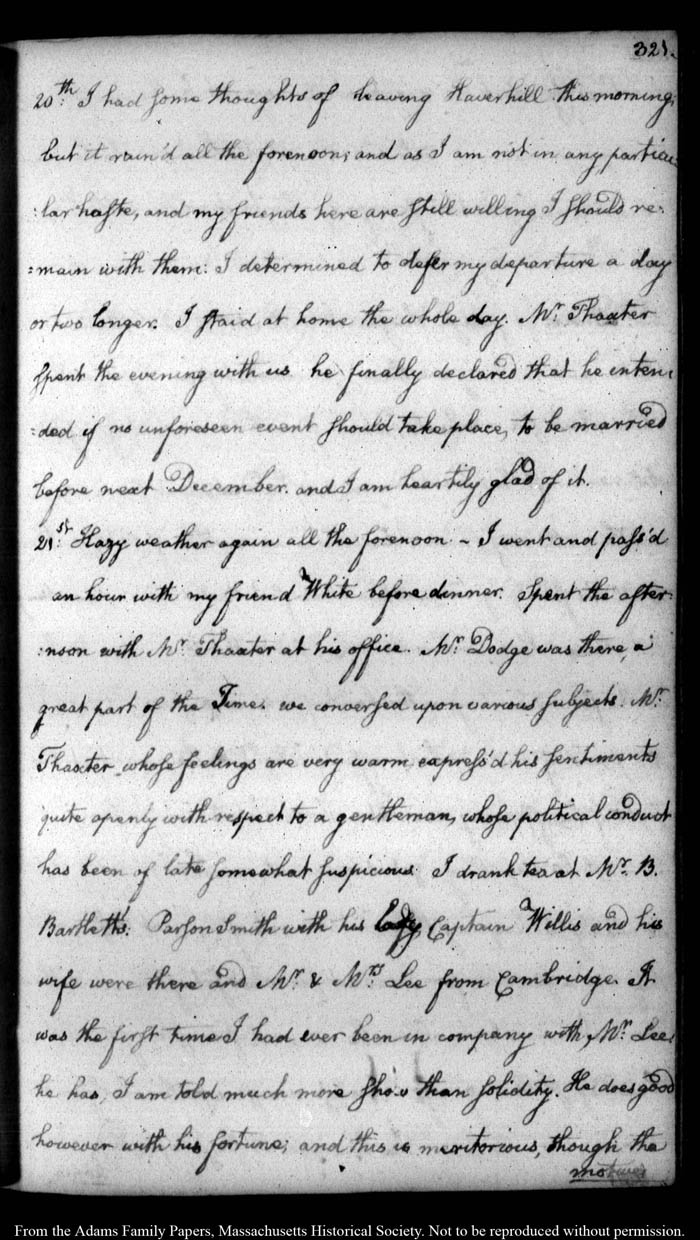 321.
20th: I had some thoughts of leaving Haverhill this morning,
but it rain'd all the forenoon; and as I am not in any particu-
:lar haste, and my friends here are still willing I should re-
:main with them: I determined to defer my departure a day
or two longer. I staid at home the whole day. Mr. Thaxter
spent the evening with us he finally declared that he inten-
:ded if no unforeseen event should take place, to be married
before next December. and I am heartily glad of it.
21st: Hazy weather again all the forenoon - I went and pass'd
an hour with my friend White before dinner. Spent the after-
:noon with Mr. Thaxter at his office. Mr. Dodge was there, a
great part of the Time. we conversed upon various subjects. Mr.
Thaxter whose feelings are very warm, express'd his sentiments
quite openly with respect to a gentleman, whose political conduct
has been of late somewhat suspicious. I drank tea at Mr. B.
Bartlett's: Parson Smith with his lady, Captain Willis and his
wife were there and Mr. & Mrs. Lee from Cambridge. It
was the first time I had ever been in company with Mr. Lee;
he has, I am told much more show than solidity. He does good
however with his fortune; and this is meritorious, though the
motives
From the Adams Family Papers, Massachusetts Historical Society. Not to be reproduced without permission.